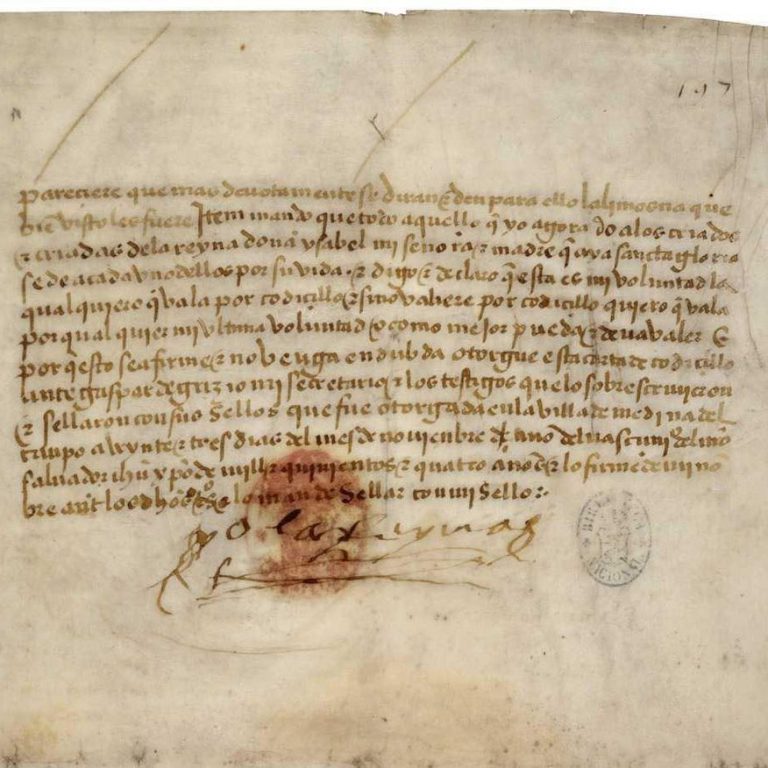 197
pareciere que mas devotamente se diran ⁊ den para ello la limosna que
biē visto les fuere Item mando que todo aquello q̄ yo agora do alos criados
⁊ criadas dela reyna doña ysabel mi señora ⁊ madre q̄ aya sancta gloria
se de a cada vno dellos por su vida ⁊ digo ⁊ declaro q̄ esta es mi voluntad la
qual quiero q̄ vala por codicillo ⁊ si no valiere por codicillo quiero q̄ vala
por qual quier mi vltima voluntad o como mejor pueda ⁊ deua valer E
por q̄ esto sea firme ⁊ no venga en dubda otorgue esta carta de codicillo
ante gaspar de grizio mi secretario ⁊ los testigos que lo sobrescriuieron
⁊ sellaron con sus sellos que fue otorgada en la villa de medina del
campo a veynte ⁊ tres dias del mes de nouienbre año del nascimi° del nr̄o
saluador ihū xp̄o de mill ⁊ quinientos ⁊ quatro años ⁊ lo firme de mi nō
bre ant̄ los dhōs t°s ⁊ lo mande sellar con mi sello :·
yo la reyna
BIBLIOTECA NACIONAL